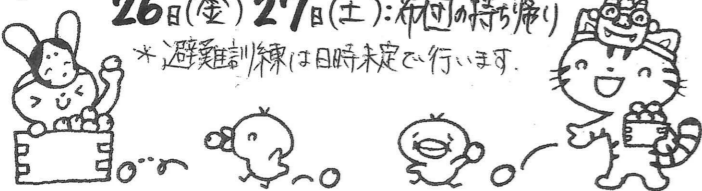 26日(金) 27日(土):布団の持ち帰り
*避難訓練は日時未定で行います.